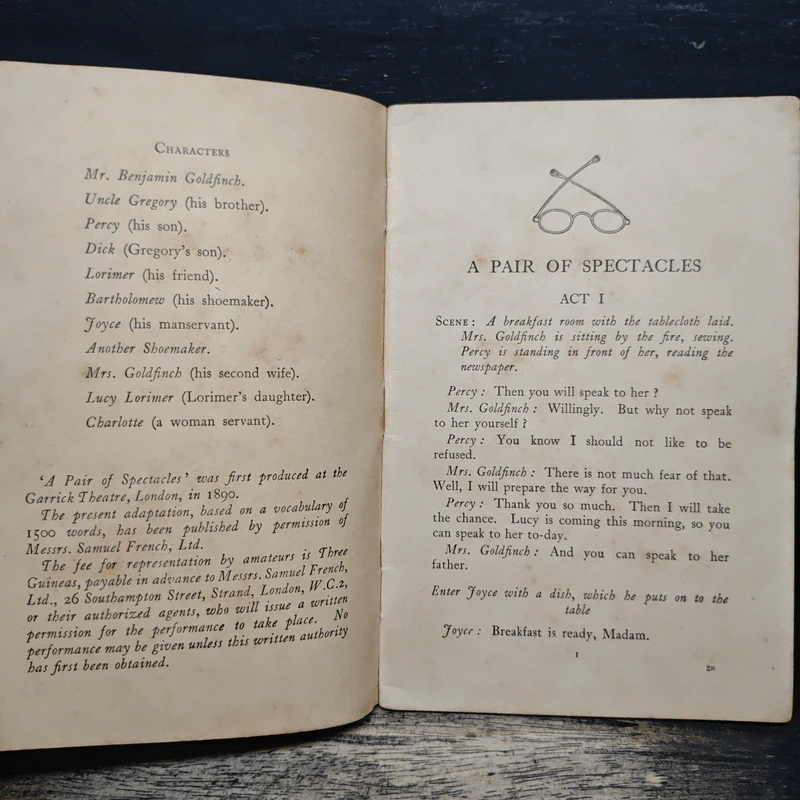 CHARACTERS
Mr. Benjamin Goldfinch.
Uncle Gregory (his brother).
Percy (his son).
Dick (Gregory's son).
Lorimer (his friend).
Bartholomew (his shoemaker).
Joyce (his manservant).
Another Shoemaker.
Mrs. Goldfinch (his second wife).
Lucy Lorimer (Lorimer's daughter).
Charlotte (a woman servant).
'A Pair of Spectacles' was first produced at the
Garrick Theatre, London, in 1890.
The present adaptation, based on a vocabulary of
1500 words, has been published by permission of
Messrs. Samuel French, Ltd.
The fee for representation by amateurs is Three
Guineas, payable in advance to Messrs. Samuel French,
Ltd., 26 Southampton Street, Strand, London, W.C.2,
or their authorized agents, who will issue a written
permission for the performance to take place. No
performance may be given unless this written authority
has first been obtained.
A PAIR OF SPECTACLES
ACT I
SCENE: A breakfast room with the tablecloth laid.
Mrs. Goldfinch is sitting by the fire, sewing.
Percy is standing in front of her, reading the
newspaper.
Percy: Then you will speak to her?
Mrs. Goldfinch: Willingly. But why not speak
to her yourself?
Percy: You know I should not like to be
refused.
Mrs. Goldfinch: There is not much fear of that.
Well, I will prepare the way for you.
Percy: Thank you so much. Then I will take
the chance. Lucy is coming this morning, so you
can speak to her to-day.
Mrs. Goldfinch: And you can speak to her
father.
Enter Joyce with a dish, which he puts on to the
table
Joyce: Breakfast is ready, Madam.
1